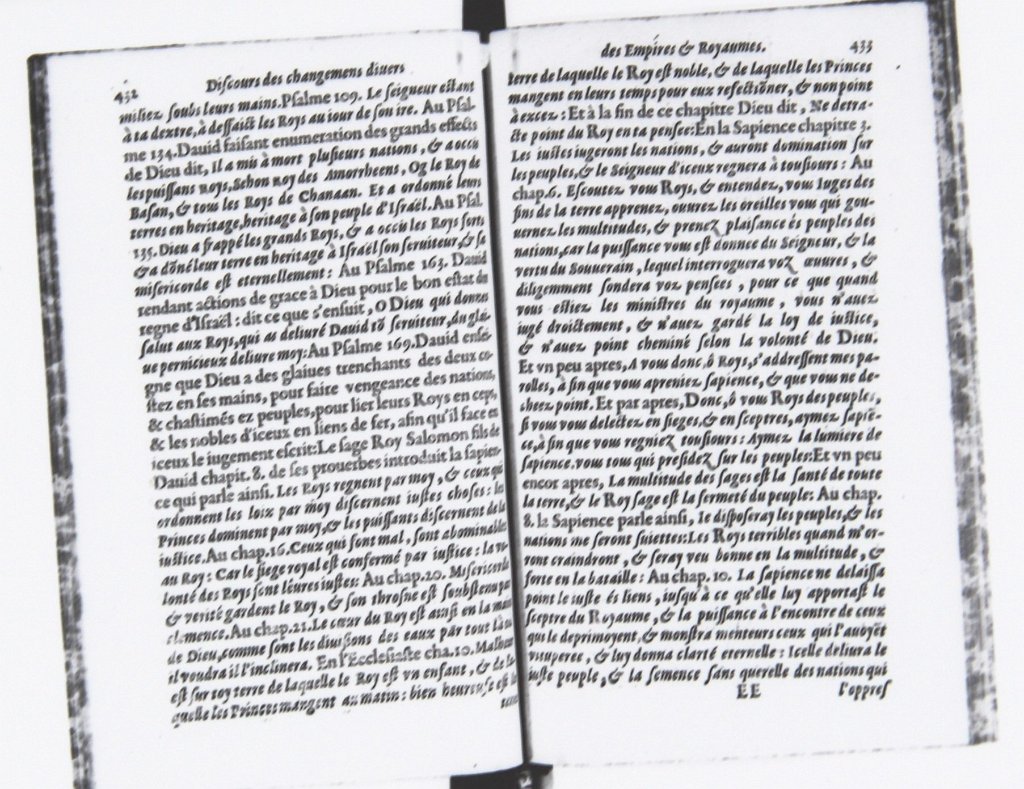 432 Diſcours des changemens diuers
miliez ſoubs leurs mains.Pſalme 109. Le ſeigneur eſtant
à ta dextre,à deffaict les Roys au iour de ſon ire. Au Pſal-
me 134.Dauid faiſant enumeration des grands effects
de Dieu dit, il a mis à mort pluſieurs nations, & a occis
les puiſſans Roys,Sehon Roy des Amorrheens, Og le Roy de
Baſan, & tous les Roys de Chanaan. Et a ordonné leurs
terres en heritage,heritage à ſon peuple d'Iſraël.Au Pſal.
135.Dieu a frappé les grands Roys, & a occis les Roys forts
& a dõné leur terre en heritage à Iſraël ſon ſeruiteur,& ſa
miſericorde eſt eternellement: Au Pſalme 163. Dauid
rendant actions de grace à Dieu pour le bon eſtat du
regne d'Iſraël: dit ce que s'enſuit, O Dieu qui donnes
ſalut aux Roys,qui as deliuré Dauid tõ ſeruiteur,du glai-
ue pernicieux deliure moy:Au Pſalme 169.Dauid enſei-
gne que Dieu a des glaiues trenchants des deux co-
ſtez en ſes mains, pour faire vengeance des nations,
& chaſtimés ez peuples,pour lier leurs Roys en ceps,
& les nobles d'iceux en liens de fer, afin qu'il face en
iceux le iugement eſcrit:Le ſage Roy Salomon fils de
Dauid chapit. 8. de ſes prouerbes introduit la ſapien-
ce qui parle ainſi. Les Roys regnent par moy, & ceux qui
ordonnent les loix par moy diſcernent iuſtes choſes: les
Princes dominent par moy,& les puiſſants diſcernent de la
iuſtice.Au chap.16.Ceux qui font mal, ſont abominables
au Roy: Car le ſiege royal eſt confermé par iuſtice: la vo-
lonté des Roys ſont leures iuſtes: Au chap.20. Miſericorde
& verité gardent le Roy, & ſon throſne eſt ſoubſtenu par
clemence.Au chap.21.Le cœur du Roy eſt aſſis en la main
de Dieu,comme ſont les diuiſions des eaux par tout là où
il voudra il l'inclinera. En l'Eccleſiaſte cha.10. Malheur
eſt ſur toy terre de laquelle le Roy eſt vn enfant, & de la-
quelle les Princes mangent au matin: bien heureuſe eſt la
terre
des Empires & Royaumes. 433
terre de laquelle le Roy eſt noble, & de laquelle les Princes
mangent en leurs temps pour eux refectiõner, & non point
à excez: Et à la fin de ce chapitre Dieu dit, Ne detra-
cte point du Roy en ta penſee:En la Sapience chapitre 3.
Les iuſtes iugeront les nations, & auront domination ſur
les peuples,& le Seigneur d'iceux regnera à touſiours: Au
chap.6. Eſcoutez vous Roys, & entendez, vous Iuges des
fins de la terre apprenez, ouurez les oreilles vous qui gou-
uernez les multitudes, & prenez plaiſance és peuples des
nations,car la puiſſance vous eſt donnee du Seigneur, & la
vertu du Souuerain, lequel interroguera voz œuures, &
diligemment ſondera voz penſees, pour ce que quand
vous eſtiez les miniſtres du royaume, vous n'auez
iugé droictement, & n'auez gardé la loy de iuſtice,
& n'auez point cheminé ſelon la volonté de Dieu.
Et vn peu apres, A vous donc,ô Roys,s'addreſſent mes pa-
rolles, à fin que vous apreniez ſapience, & que vous ne de-
cheez point. Et par apres, Donc,ô vous Roys des peuples,
ſi vous vous delectez en ſieges,& en ſceptres, aymez ſapie-
ce,à fin que vous regniez touſiours: Aymez la lumiere de
ſapience.vous tous qui preſidez ſur les peuples:Et vn peu
encor apres, La multitude des ſages eſt la ſanté de toute
la terre,& le Roy ſage eſt la fermeté du peuple: Au chap.
8. la Sapience parle ainſi, Ie diſpoſeray les peuples,& les
nations me ſeront ſuiettes:Les Roys terribles quand m'or-
ront craindront, & ſeray veu bonne en la multitude, &
forte en la bataille: Au chap. 10. La ſapience ne delaiſſa
point le iuſte és liens, iuſqu'à ce qu'elle luy apportaſt le
ſceptre du Royaume, & la puiſſance à l'encontre de ceux
qui le deprimoyent,& monſtra menteurs ceux qui l'auoyẽt
vituperee, & luy donna clarté eternelle: Icelle deliura le
iuſte peuple, & la ſemence ſans querelle des nations qui
EE l'oppreſ